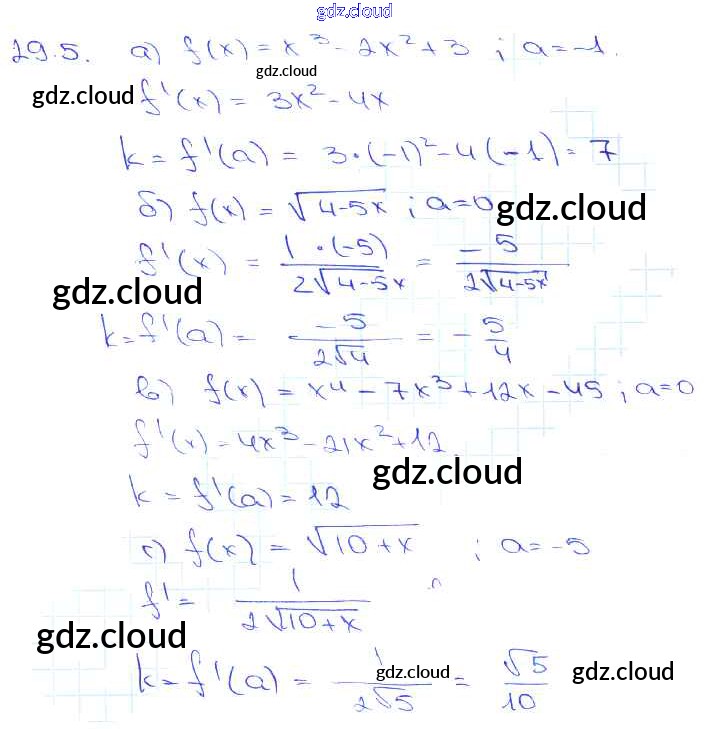 gdz.cloud
29.5. а) f(x) = x³ - 2x² + 3 ; a = -1.
gdz.cloud
gdz.cloud f'(x) = 3x² - 4x
k = f'(a) = 3·(-1)² - 4(-1) = 7
б) f(x) = √(4-5x) ; a = 0
gdz.cloud
f'(x) = 1·(-5)/(2√(4-5x)) = -5/(2√(4-5x))
gdz.cloud
k = f'(a) = -5/(2√4) = -5/4
в) f(x) = x⁴ - 7x³ + 12x - 45 ; a = 0
f'(x) = 4x³ - 21x² + 12
gdz.cloud
k = f'(a) = 12
г) f(x) = √(10+x) ; a = -5
f' = 1/(2√(10+x))
gdz.cloud
k = f'(a) = 1/(2√5) = √5/10
gdz.cloud
gdz.cloud